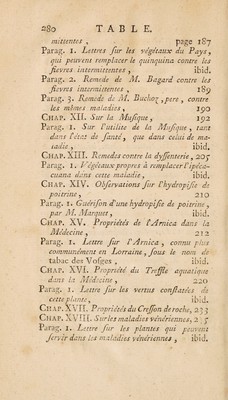 280 TABLE.
mittentes, page 187
Parag. 1. Lettres sur les végétaux du Pays,
qui peuvent remplacer le quinquina contre les
fievres intermittentes, ibid.
Parag. 2. Remede de M. Bagard contre les
fievres intermittentes, 189
Parag. 3. Remede de M. Buchoz, pere, contre
les mêmes maladies, 190
CHAP. XII. Sur la Musique, 192
Parag. 1. Sur l'utilité de la Musique, tant
dans l'état de santé, que dans celui de ma-
ladie, ibid.
CHAP. XIII. Remedes contre la dyssenterie, 207
Parag. 1. Végétaux propres à remplacer l'ipéca-
cuana dans cette maladie, ibid.
CHAP. XIV. Observations sur l'hydropisie de
poitrine, 210
Parag. 1. Guérison d'une hydropisie de poitrine,
par M. Marquet, ibid.
CHAP. XV. Propriétés de l'Arnica dans la
Médecine, 212
Parag. 1. Lettre sur l'Arnica, connu plus
communément en Lorraine, sous le nom de
tabac des Vosges, ibid.
CHAP. XVI. Propriété du Treffle aquatique
dans la Médecine, 220
Parag. 1. Lettre sur les vertus constatées de
cette plante, ibid.
CHAP. XVII. Propriétés du Cresson de roche, 233
CHAP. XVIII. Sur les maladies vénériennes,
Parag. 1. Lettre sur les plantes qui peuvent
servir dans les maladies vénériennes, ibid.